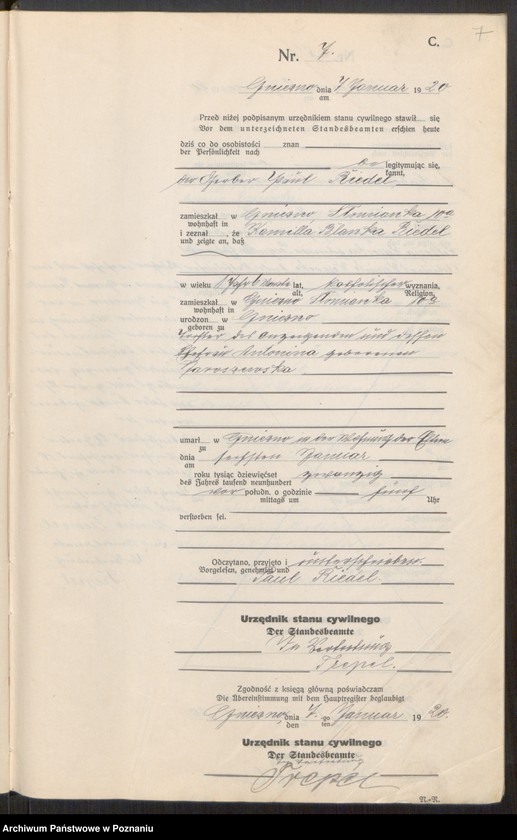 7
C.
Nr. 7.
Gniezno dnia 7 Januar 1920
am
Przed niżej podpisanym urzędnikiem stanu cywilnego stawił się
Vor dem unterzeichneten Standesbeamten erschien heute
dziś co do osobistości znan
der Persönlichkeit nach
legitymując się,
kannt,
der Gerber Paul Riedel
zamieszkał w Gniezno Słomianka 10a
wohnhaft in
i zeznał, że Kamilla Blanka Riedel
und zeigte an, daß
w wieku 1 Jahr 6 Monate lat, katholischer wyznania,
alt, Religion,
zamieszkał w Gniezno Słomianka
wohnhaft in
urodzon w Gniezno
geboren zu
Tochter des Anzeigenden und dessen
Ehefrau Antonina geborenen
Jaroszewska
umarł w Gniezno in der Wohnung der Eltern
zu
dnia sechsten Januar
am
roku tysiąc dziewięćset zwanzig
des Jahres tausend neunhundert
vor połudn. o godzinie fünf
mittags um Uhr
verstorben sei.
Odczytano, przyjęto i unterschrieben.
Vorgelesen, genehmigt und
Paul Riedel.
Urzędnik stanu cywilnego
Der Standesbeamte
In Vertretung
Trepel.
Zgodność z księgą główną poświadczam
Die Übereinstimmung mit dem Hauptregister beglaubigt
Gniezno, dnia 7. -go Januar 1920.
den ten
Urzędnik stanu cywilnego
Der Standesbeamte
In Vertretung
Trepel
N.-R.
Archiwum Państwowe w Poznaniu